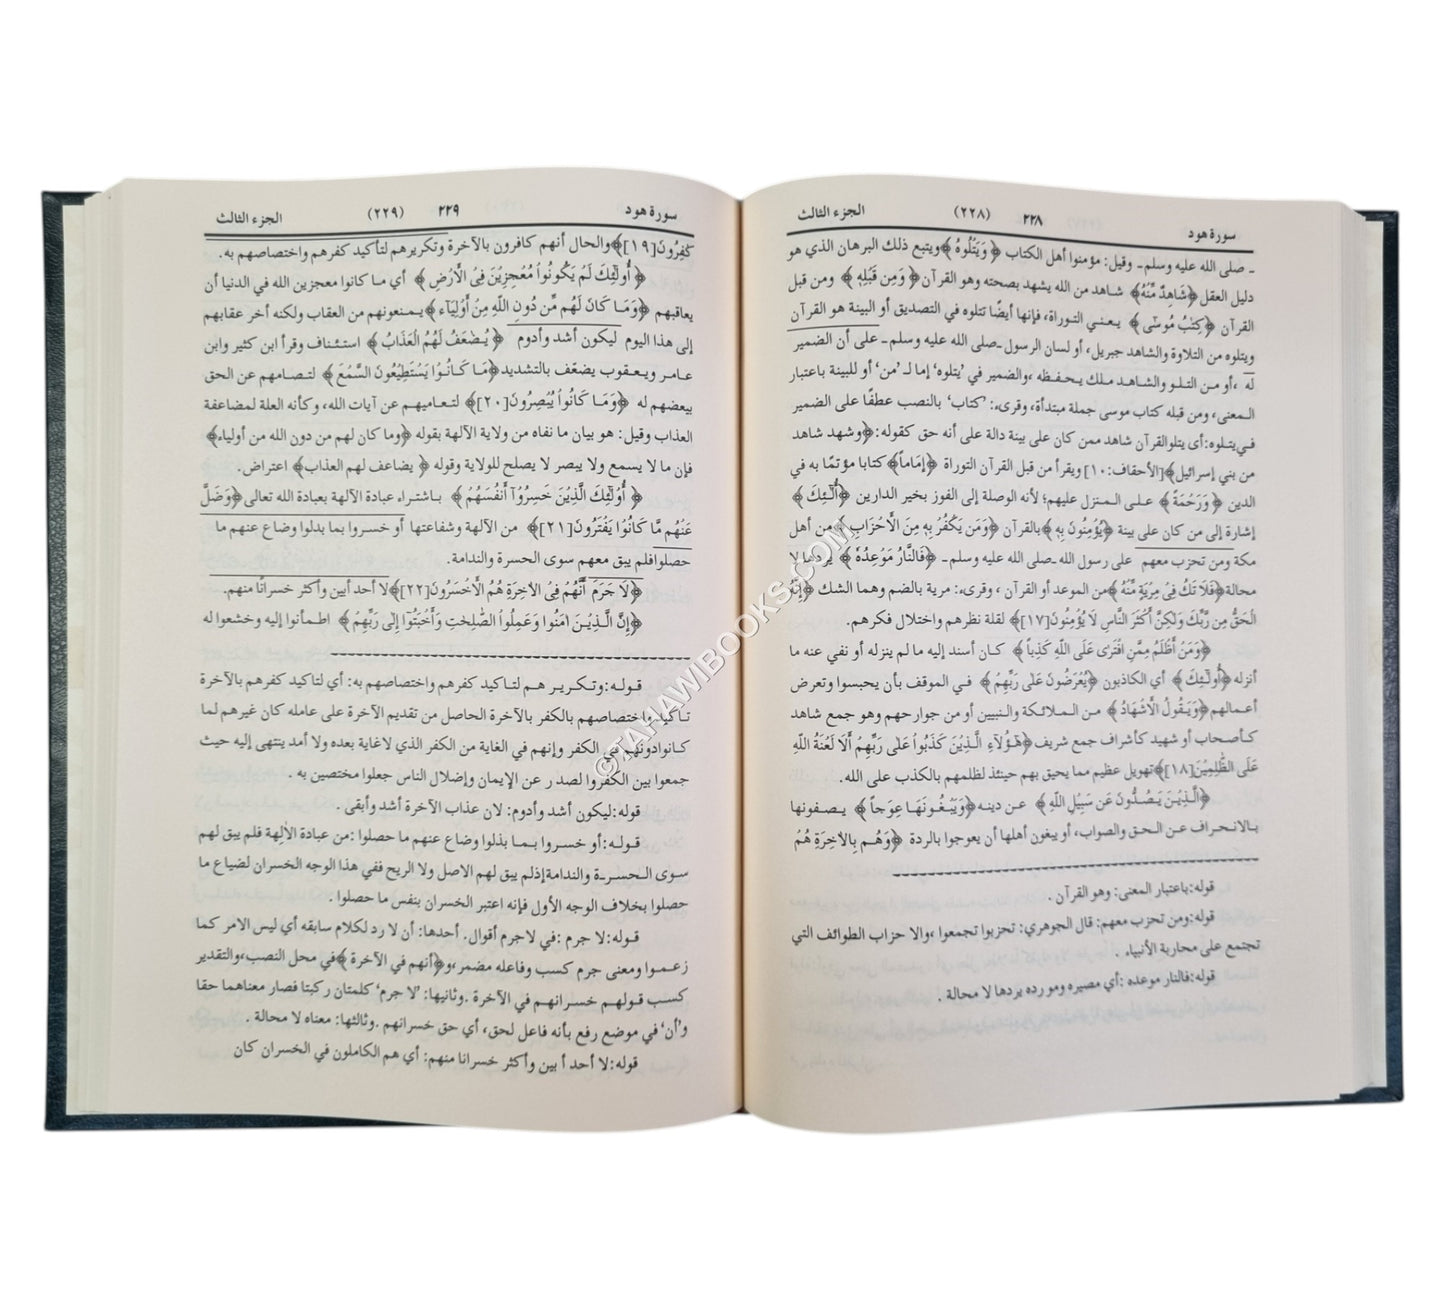 سورة هود ٢٢٨ (٢٢٨) الجزء الثالث
ـ صلى الله عليه وسلم ـ وقيل: مؤمنوا أهل الكتاب ﴿ وَيَتْلُوهُ ﴾ويتبع ذلك البرهان الذي هو
دليل العقل ﴿شَاهِدٌ مِّنْهُ﴾ شاهد من الله يشهد بصحته وهو القرآن ﴿ وَمِن قَبْلِهِ ﴾ ومن قبل
القرآن ﴿كِتٰبُ مُوسٰى ﴾ يعني التوراة، فإنها أيضًا تتلوه في التصديق أو البينة هو القرآن
ويتلوه من التلاوة والشاهد جبريل، أو لسان الرسول ـصلى الله عليه وسلم ـ على أن الضمير
له ،أو من التلو والشاهد ملك يحفظه ،والضمير في ’يتلوه‘ إما لـ ’من‘ أو للبينة باعتبار
المعنى، ومن قبله كتاب موسى جملة مبتدأة، وقرىء: ’كتاب‘ بالنصب عطفًا على الضمير
في يتلوه: أي يتلوالقرآن شاهد ممن كان على بينة دالة على أنه حق كقوله: ﴿وشهد شاهد
من بني إسرائيل﴾[الأحقاف:١٠] ويقرأ من قبل القرآن التوراة ﴿إِمَاماً﴾كتابا مؤتمًا به في
الدين ﴿ وَرَحْمَةً ﴾ على المنزل عليهم؛ لأنه الوصلة إلى الفوز بخير الدارين ﴿أُولَٰٓئِكَ ﴾
إشارة إلى من كان على بينة ﴿يُؤْمِنُونَ بِهِ ﴾بالقرآن ﴿وَمَن يَكْفُرْ بِهِ مِنَ الْأَحْزَابِ ﴾ من أهل
مكة ومن تحزب معهم على رسول الله ـصلى الله عليه وسلم ـ ﴿فَالنَّارُ مَوْعِدُهٗ ﴾ يردها لا
محالة﴿فَلَا تَكُ فِيْ مِرْيَةٍ مِّنْهُ ﴾من الموعد أو القرآن ، وقرىء: مرية بالضم وهما الشك ﴿إِنَّهُ
الْحَقُّ مِن رَّبِّكَ وَلٰكِنَّ أَكْثَرَ النَّاسِ لَا يُؤْمِنُونَ[١٧]﴾ لقلة نظرهم واختلال فكرهم.
﴿وَمَنْ أَظْلَمُ مِمَّنِ افْتَرٰى عَلَى اللّٰهِ كَذِباً ﴾ كأن أسند إليه ما لم ينزله أو نفي عنه ما
أنزله ﴿أُولَٰٓئِكَ ﴾ أي الكاذبون ﴿يُعْرَضُونَ عَلٰى رَبِّهِمْ ﴾ في الموقف بأن يحبسوا وتعرض
أعمالهم﴿وَيَقُولُ الْأَشْهَادُ ﴾ من الملائكة والنبيين أو من جوارحهم وهو جمع شاهد
كأصحاب أو شهيد كأشراف جمع شريف ﴿هٰٓؤُلَآءِ الَّذِيْنَ كَذَبُوا عَلٰى رَبِّهِمْ أَلَا لَعْنَةُ اللّٰهِ
عَلَى الظّٰلِمِيْنَ[١٨]﴾تهويل عظيم مما يحيق بهم حينئذ لظلمهم بالكذب على الله.
﴿الَّذِيْنَ يَصُدُّونَ عَن سَبِيْلِ اللّٰهِ ﴾ عن دينه ﴿وَيَبْغُونَهَا عِوَجاً ﴾ يصفونها
بالانحراف عن الحق والصواب، أو يبغون أهلها أن يعوجوا بالردة ﴿وَهُم بِالْاٰخِرَةِ هُمْ
قوله:باعتبار المعنى: وهو القرآن .
قوله:ومن تحزب معهم: قال الجوهري: تحزبوا تجمعوا ،والا حزاب الطوائف التي
تجتمع على محاربة الأنبياء .
قوله:فالنار موعده :أي مصيره ومورده يردها لا محالة .
سورة هود ٢٢٩ (٢٢٩) الجزء الثالث
كٰفِرُونَ[١٩]﴾والحال أنهم كافرون بالآخرة وتكريرهم لتأكيد كفرهم واختصاصهم به.
﴿ أُولَٰٓئِكَ لَمْ يَكُونُواْ مُعْجِزِيْنَ فِى الْأَرْضِ ﴾ أي ما كانوا معجزين الله في الدنيا أن
يعاقبهم ﴿وَمَا كَانَ لَهُم مِّن دُونِ اللّٰهِ مِنْ أَوْلِيَآءَ ﴾يمنعونهم من العقاب ولكنه أخر عقابهم
إلى هذا اليوم ليكون أشد وأدوم ﴿ يُضٰعَفُ لَهُمُ الْعَذَابُ ﴾ استئناف وقرأ ابن كثير وابن
عامر ويعقوب يضعّف بالتشديد﴿مَا كَانُواْ يَسْتَطِيْعُونَ السَّمْعَ ﴾ لتصامهم عن الحق
ببعضهم له ﴿وَمَا كَانُواْ يُبْصِرُونَ[٢٠]﴾ لتعاميهم عن آيات الله، وكأنه العلة لمضاعفة
العذاب وقيل: هو بيان ما نفاه من ولاية الآلهة بقوله ﴿وما كان لهم من دون الله من أولياء﴾
فإن ما لا يسمع ولا يبصر لا يصلح للولاية وقوله ﴿ يضاعف لهم العذاب﴾ اعتراض.
﴿ أُولَٰٓئِكَ الَّذِيْنَ خَسِرُوٓا أَنْفُسَهُمْ ﴾ باشتراء عبادة الآلهة بعبادة الله تعالى ﴿وَضَلَّ
عَنْهُم مَّا كَانُوْا يَفْتَرُونَ[٢١]﴾ من الآلهة وشفاعتها أو خسروا بما بدلوا وضاع عنهم ما
حصلوا فلم يبق معهم سوى الحسرة والندامة.
﴿لَا جَرَمَ أَنَّهُمْ فِى الْاٰخِرَةِ هُمُ الْأَخْسَرُونَ[٢٢]﴾لا أحد أبين وأكثر خسرانًا منهم.
﴿إِنَّ الَّذِيْنَ اٰمَنُوا وَعَمِلُوا الصّٰلِحٰتِ وَأَخْبَتُوٓا إِلٰى رَبِّهِمْ ﴾ اطمأنوا إليه وخشعوا له
قوله:وتكريرهم لتاكيد كفرهم واختصاصهم به: أي لتاكيد كفرهم بالآخرة
تاكيد واختصاصهم بالكفر بالآخرة الحاصل من تقديم الآخرة على عامله كان غيرهم لما
كانوادونهم في الكفر وإنهم في الغاية من الكفر الذي لاغاية بعده ولا أمد ينتهى إليه حيث
جمعوا بين الكفروا لصدر عن الإيمان وإضلال الناس جعلوا مختصين به .
قوله:ليكون أشد وأدوم: لان عذاب الآخرة أشد وأبقى .
قوله:أو خسروا بما بذلوا وضاع عنهم ما حصلوا :من عبادة الاٰلِهة فلم يبق لهم
سوى الحسرة والندامةإذلم يبق لهم الاصل ولا الربح ففي هذا الوجه الخسران لضياع ما
حصلوا بخلاف الوجه الأول فإنه اعتبر الخسران بنفس ما حصلوا .
قوله:لا جرم :في لاجرم أقوال. أحدها: أن لا رد لكلام سابقه أي ليس الامر كما
زعموا ومعنى جرم كسب وفاعله مضمر،و﴿أنهم في الآخرة ﴾في محل النصب،والتقدير
كسب قولهم خسرانهم في الآخرة .وثانيها: ’لا جرم‘ كلمتان ركبتا فصار معناهما حقا
و’أن‘ في موضع رفع بأنه فاعل لحق، أي حق خسرانهم .وثالثها: معناه لا محالة .
قوله:لا أحد أ بين وأكثر خسرانا منهم: أي هم الكاملون في الخسران كان
©TAHAWIBOOKS.COM